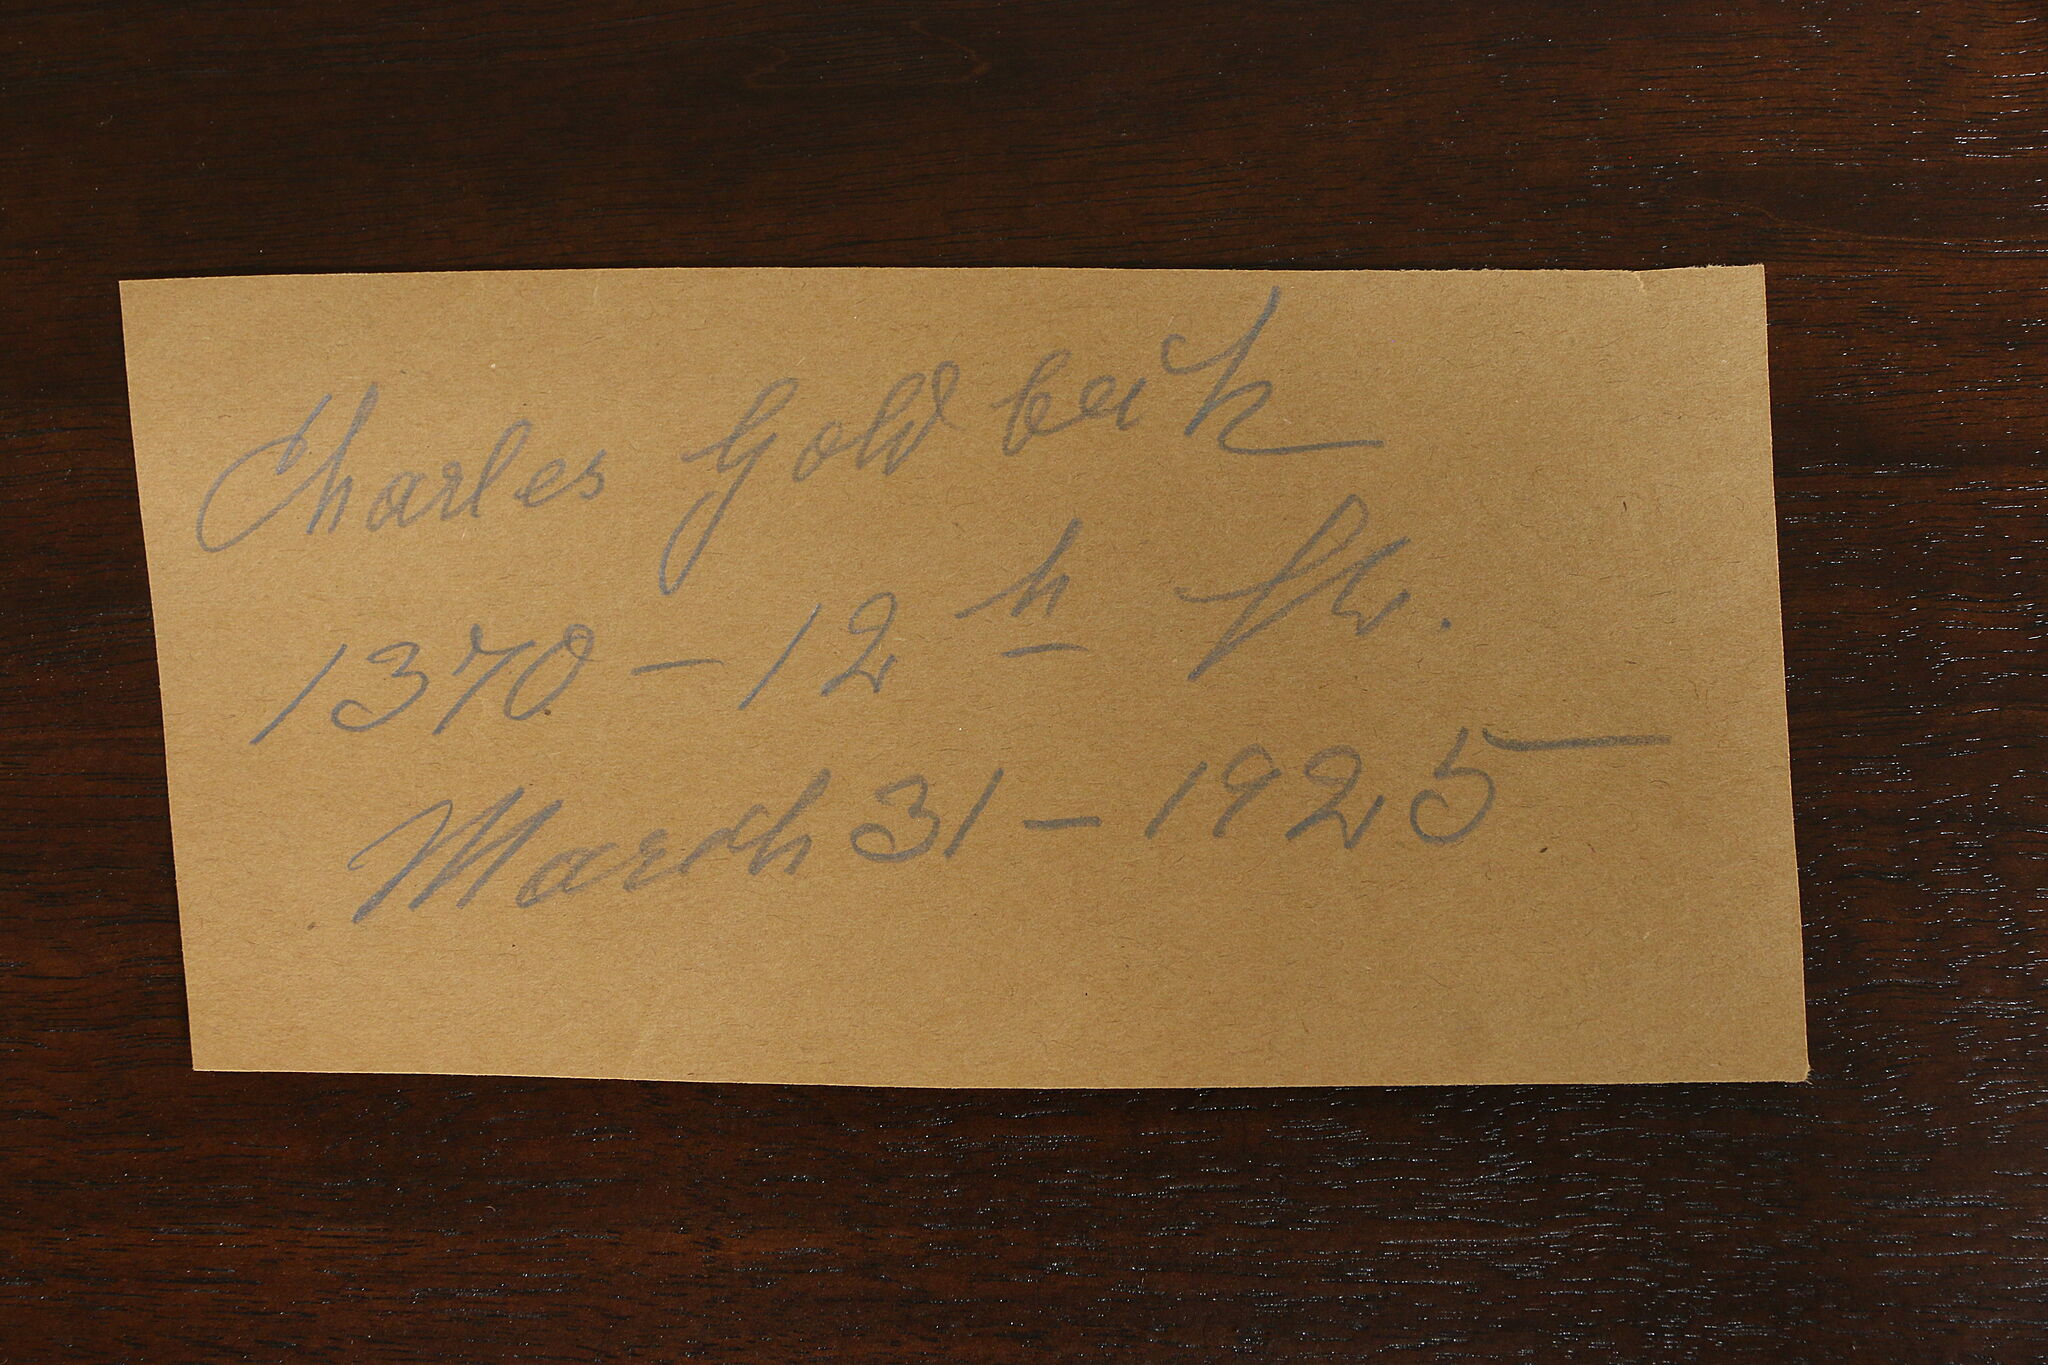 Charles Goldbeck
1370 - 12 h
March 31 - 1925